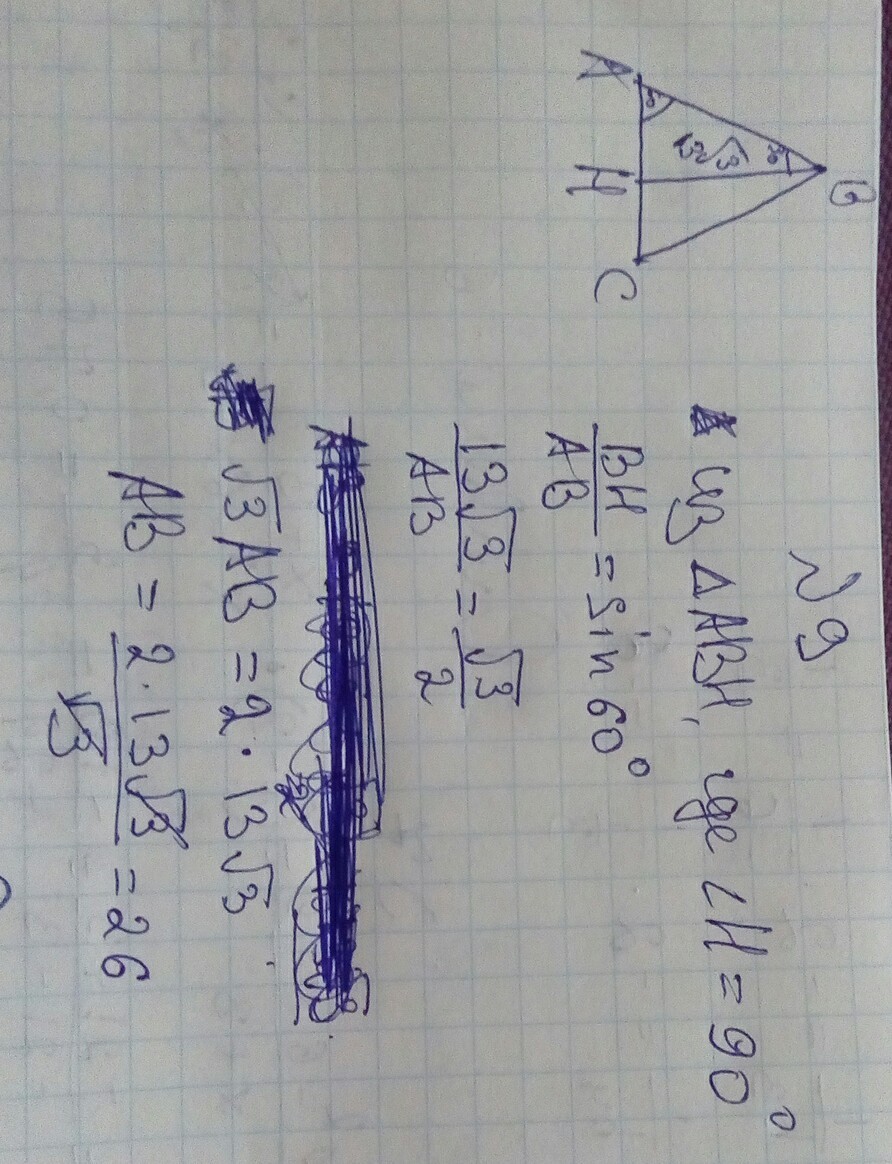 B
A
H
C
13√3
№9
из ΔABH, где ∠H = 90°
BH/AB = sin 60°
13√3/AB = √3/2
√3 AB = 2 · 13√3
AB = 2 · 13√3/√3 = 26